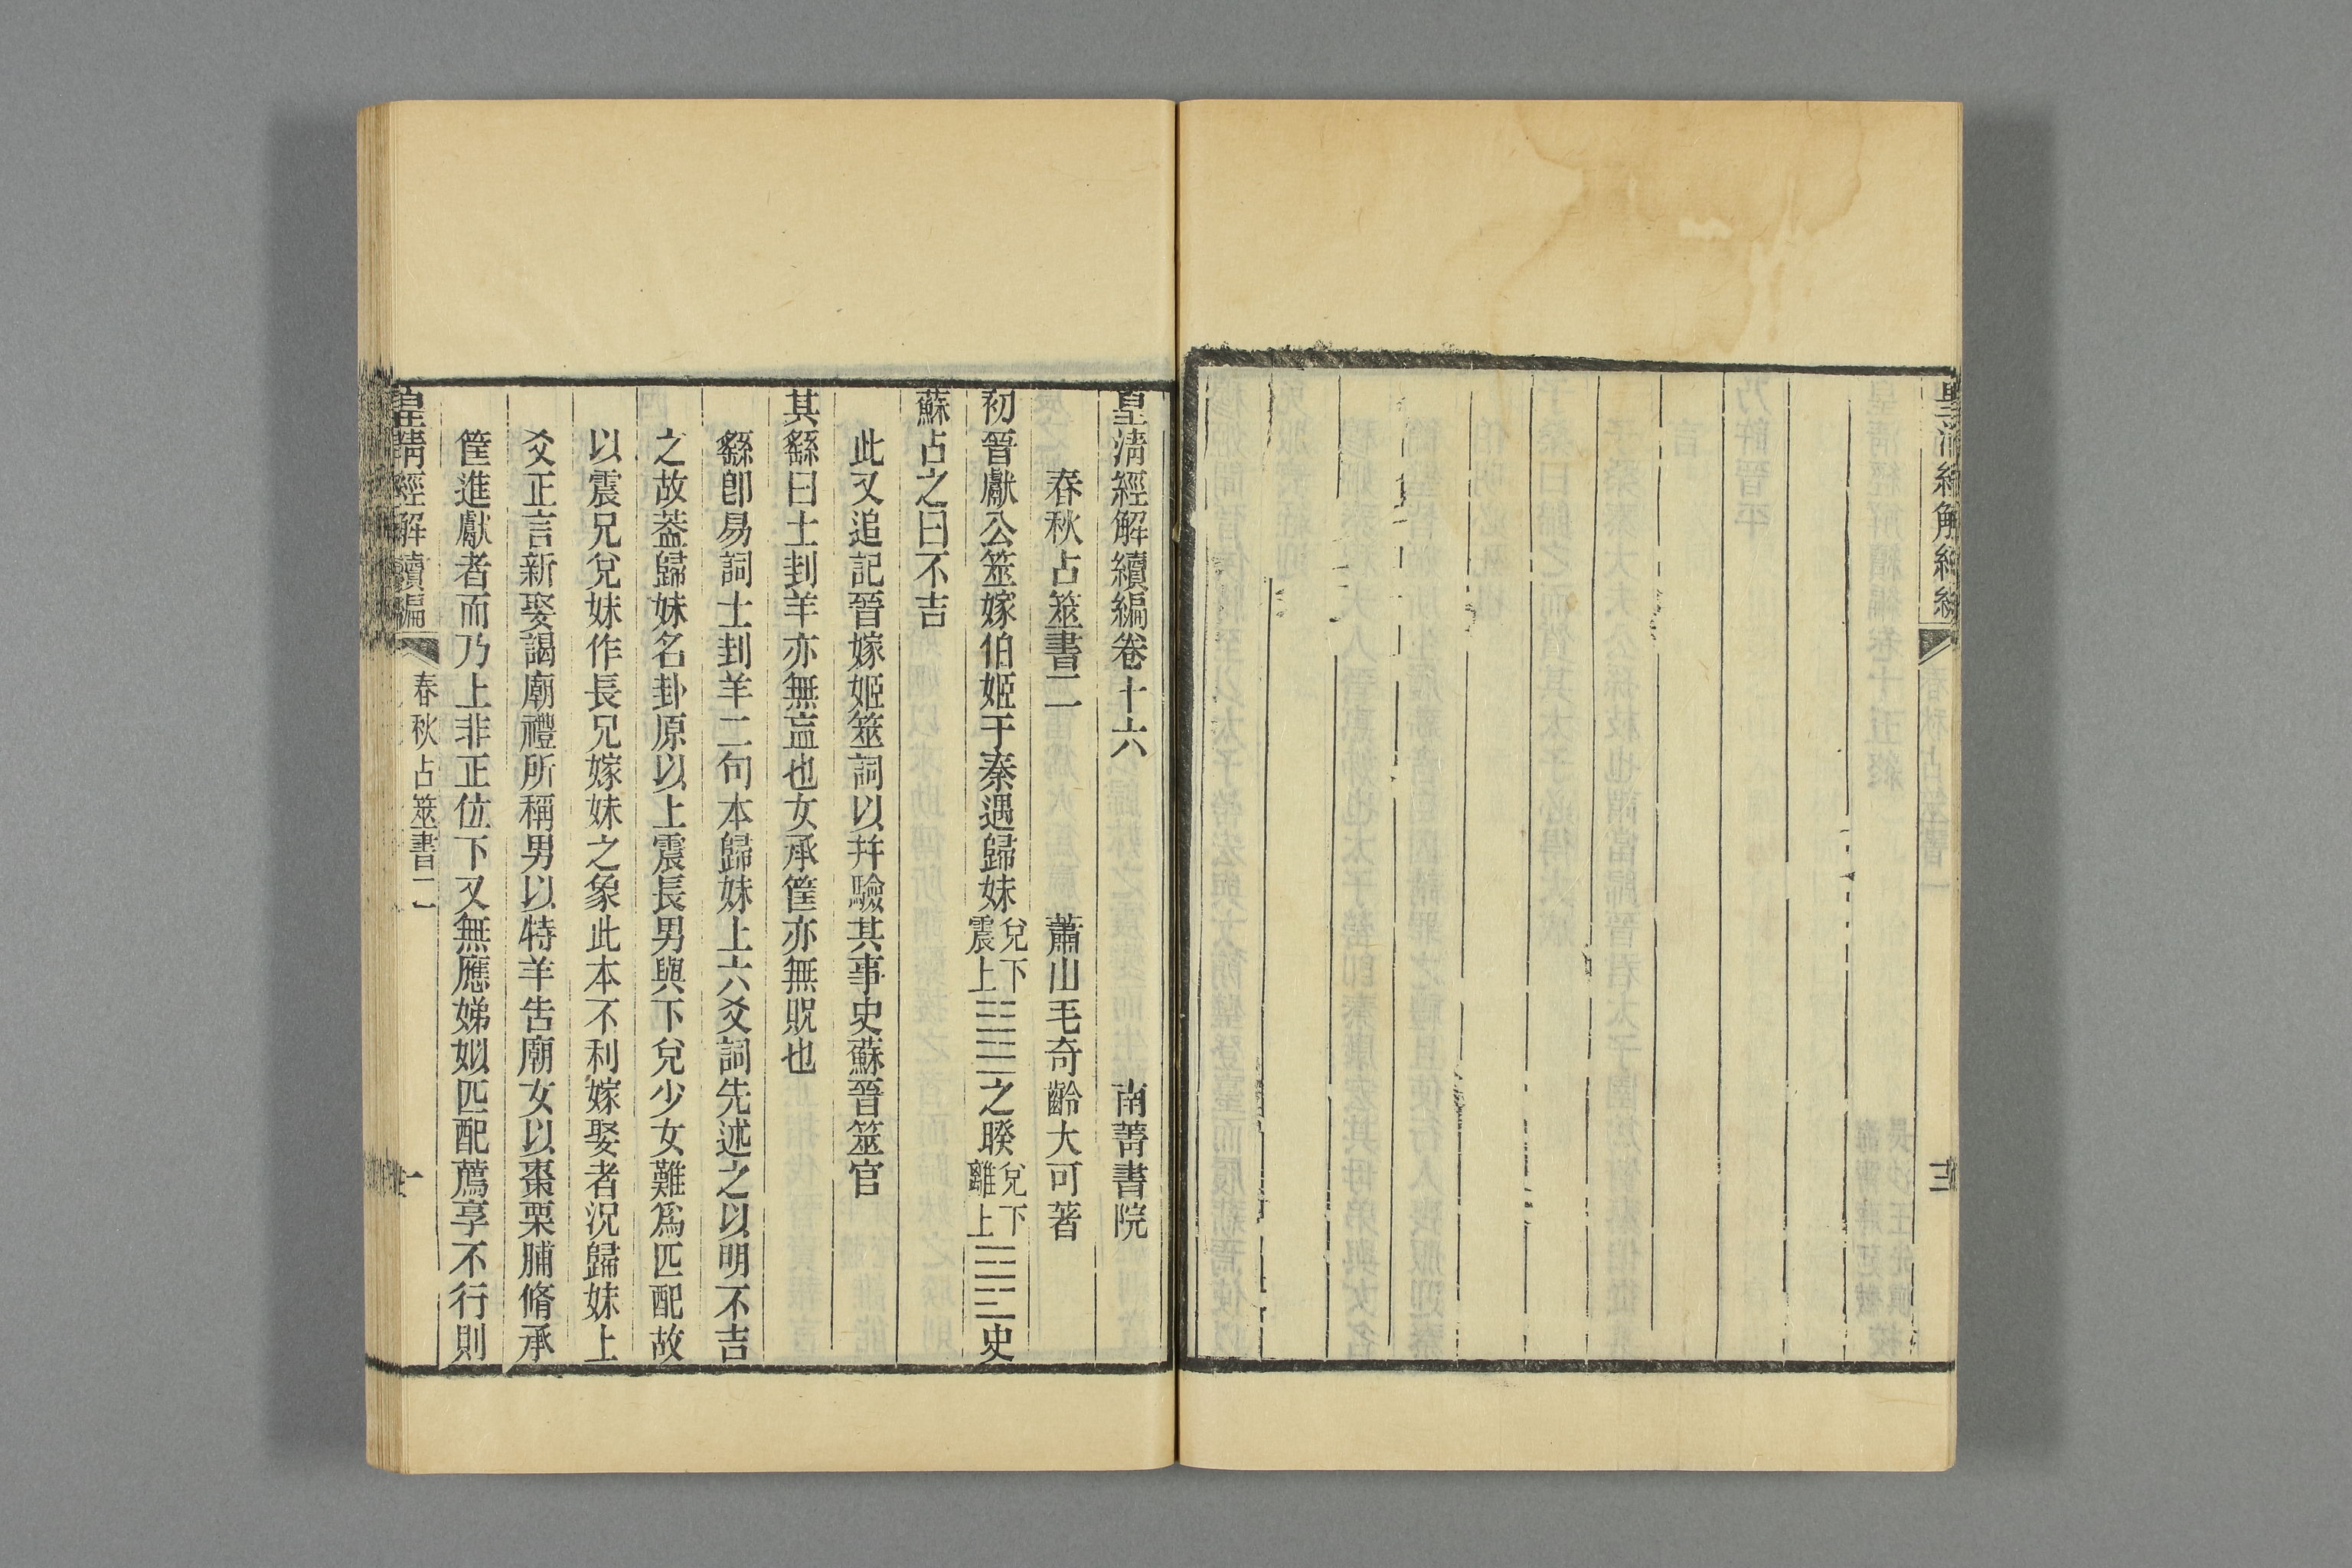 皇清經解續編卷十六　南菁書院
春秋占筮書二　蕭山毛奇齡大可著
初晉獻公筮嫁伯姬于秦遇歸妹兌下震上䷵之睽兌下離上䷥史
蘇占之曰不吉
此又追記晉嫁姬筮詞以幷驗其事史蘇晉筮官
其繇曰士刲羊亦無衁也女承筐亦無貺也
繇卽易詞士刲羊二句本歸妹上六爻詞先述之以明不吉
之故葢歸妹名卦原以上震長男與下兌少女難爲匹配故
以震兄兌妹作長兄嫁妹之象此本不利嫁娶者況歸妹上
爻正言新娶謁廟禮所稱男以特羊告廟女以棗栗脯脩承
筐進獻者而乃上非正位下又無應娣姒匹配薦享不行則
皇淸經解續編　春秋占筮書二　一